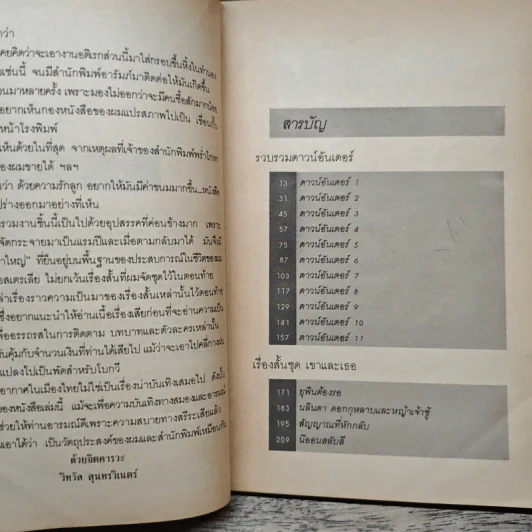 กว่า
เคยคิดว่าจะเอางานอดิเรกส่วนนี้มาใส่กรอบขึ้นหิ้งในทำนอง
เช่นนี้ จนมีสำนักพิมพ์อารัมภ์มาติดต่อให้มันเกิดขึ้น
นมาหลายครั้ง เพราะมองไม่ออกว่าจะมีคนซื้อสักมากน้อย
อยากเห็นกองหนังสือของผมแปรสภาพไปเป็น เชื่อนกั้น
หน้าโรงพิมพ์
เห็นด้วยในที่สุด จากเหตุผลที่เจ้าของสำนักพิมพ์พร่ำโฆษ
องผมขายได้ ฯลฯ
นว่า ด้วยความรักลูก อยากให้มันมีค่าขนมมากขึ้น...หนังสือ
ปร่างออกมาอย่างที่เห็น
รวมงานชิ้นนี้เป็นไปด้วยอุปสรรคที่ค่อนข้างมาก เพราะ
จัดกระจายมาเป็นแรมปีและเมื่อตามกลับมาได้ มันจึงมี
าใหญ่" ที่ยืนอยู่บนพื้นฐานของประสบการณ์ในชีวิตของผม
อสเตรเลีย ไม่ยกเว้นเรื่องสั้นที่ผมจัดชุดไว้ในตอนท้าย
ล่าเรื่องราวความเป็นมาของเรื่องสั้นเหล่านั้นไว้ตอนท้าย
ซึ่งอยากแนะนำให้อ่านเนื้อเรื่องเสียก่อนที่จะอ่านความเป็น
พื่ออรรถรสในการติดตาม บทบาทและตัวละครเหล่านั้น
มันคุ้มกับจำนวนเงินที่ท่านได้เสียไป แม้ว่าจะเอาไปคลี่กางแผ่
แปลงไปเป็นพัดสำหรับโบกวี
อากาศในเมืองไทยไม่ใช่เรื่องน่าบันเทิงเสมอไป ดังนั้น
ของหนังสือเล่มนี้ แม้จะเพื่อความบันเทิงทางสมองและอารมณ์
ช่วยให้ท่านอารมณ์ดีเพราะความสบายทางสรีระเสียแล้ว
นเอาได้ว่า เป็นวัตถุประสงค์ของผมและสำนักพิมพ์เหมือนกัน
ด้วยจิตคารวะ
วิทวัส สุนทรวิเนตร์
สารบัญ
รวบรวมดาวน์อันเดอร์
13 ดาวน์อันเดอร์ 1
31 ดาวน์อันเดอร์ 2
45 ดาวน์อันเดอร์ 3
57 ดาวน์อันเดอร์ 4
75 ดาวน์อันเดอร์ 5
87 ดาวน์อันเดอร์ 6
103 ดาวน์อันเดอร์ 7
117 ดาวน์อันเดอร์ 8
129 ดาวน์อันเดอร์ 9
141 ดาวน์อันเดอร์ 10
157 ดาวน์อันเดอร์ 11
เรื่องสั้นชุด เขาและเธอ
171 ยุพินต้องรอ
183 นลินดา ดอกกุหลาบและหญ้าเจ้าชู้
195 สัญญาณที่หักกลับ
209 นีออนสลับสี